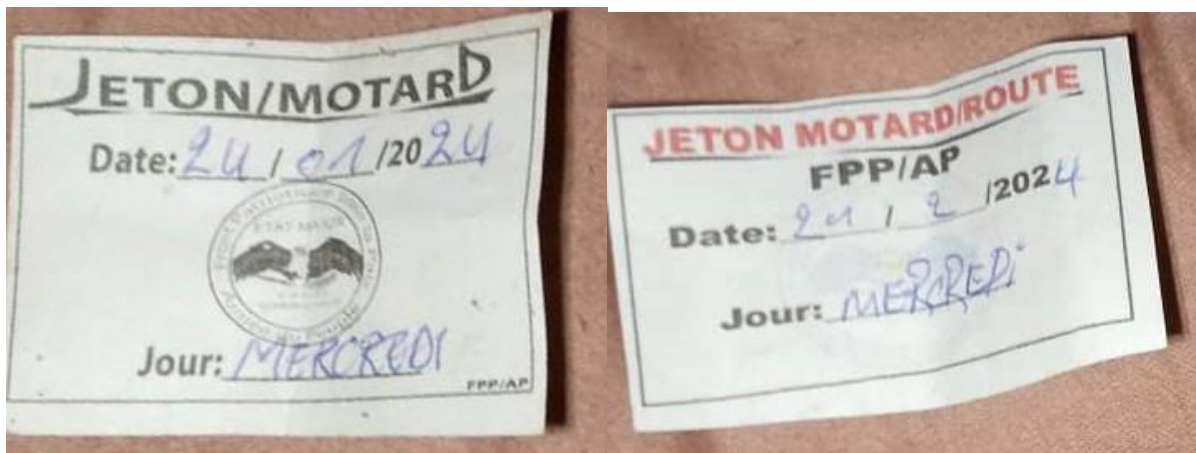 JETON/MOTARD
Date: 24 / 01 /2024
ETAT MAJOR
Jour: MERCREDI
FPP/AP
JETON MOTARD/ROUTE
FPP/AP
Date: 21 / 2 /2024
Jour: MERCREDI